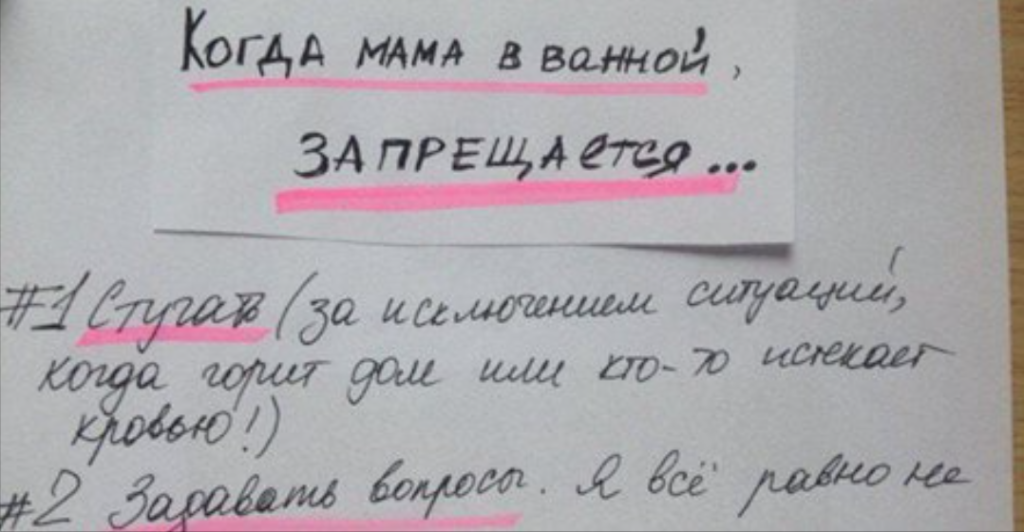 Когда мама в ванной,
ЗАПРЕЩАЕТСЯ...
#1 Стучать (за исключением ситуаций,
когда горит дом или кто-то истекает
кровью!)
#2 Задавать вопросы. Я всё равно не